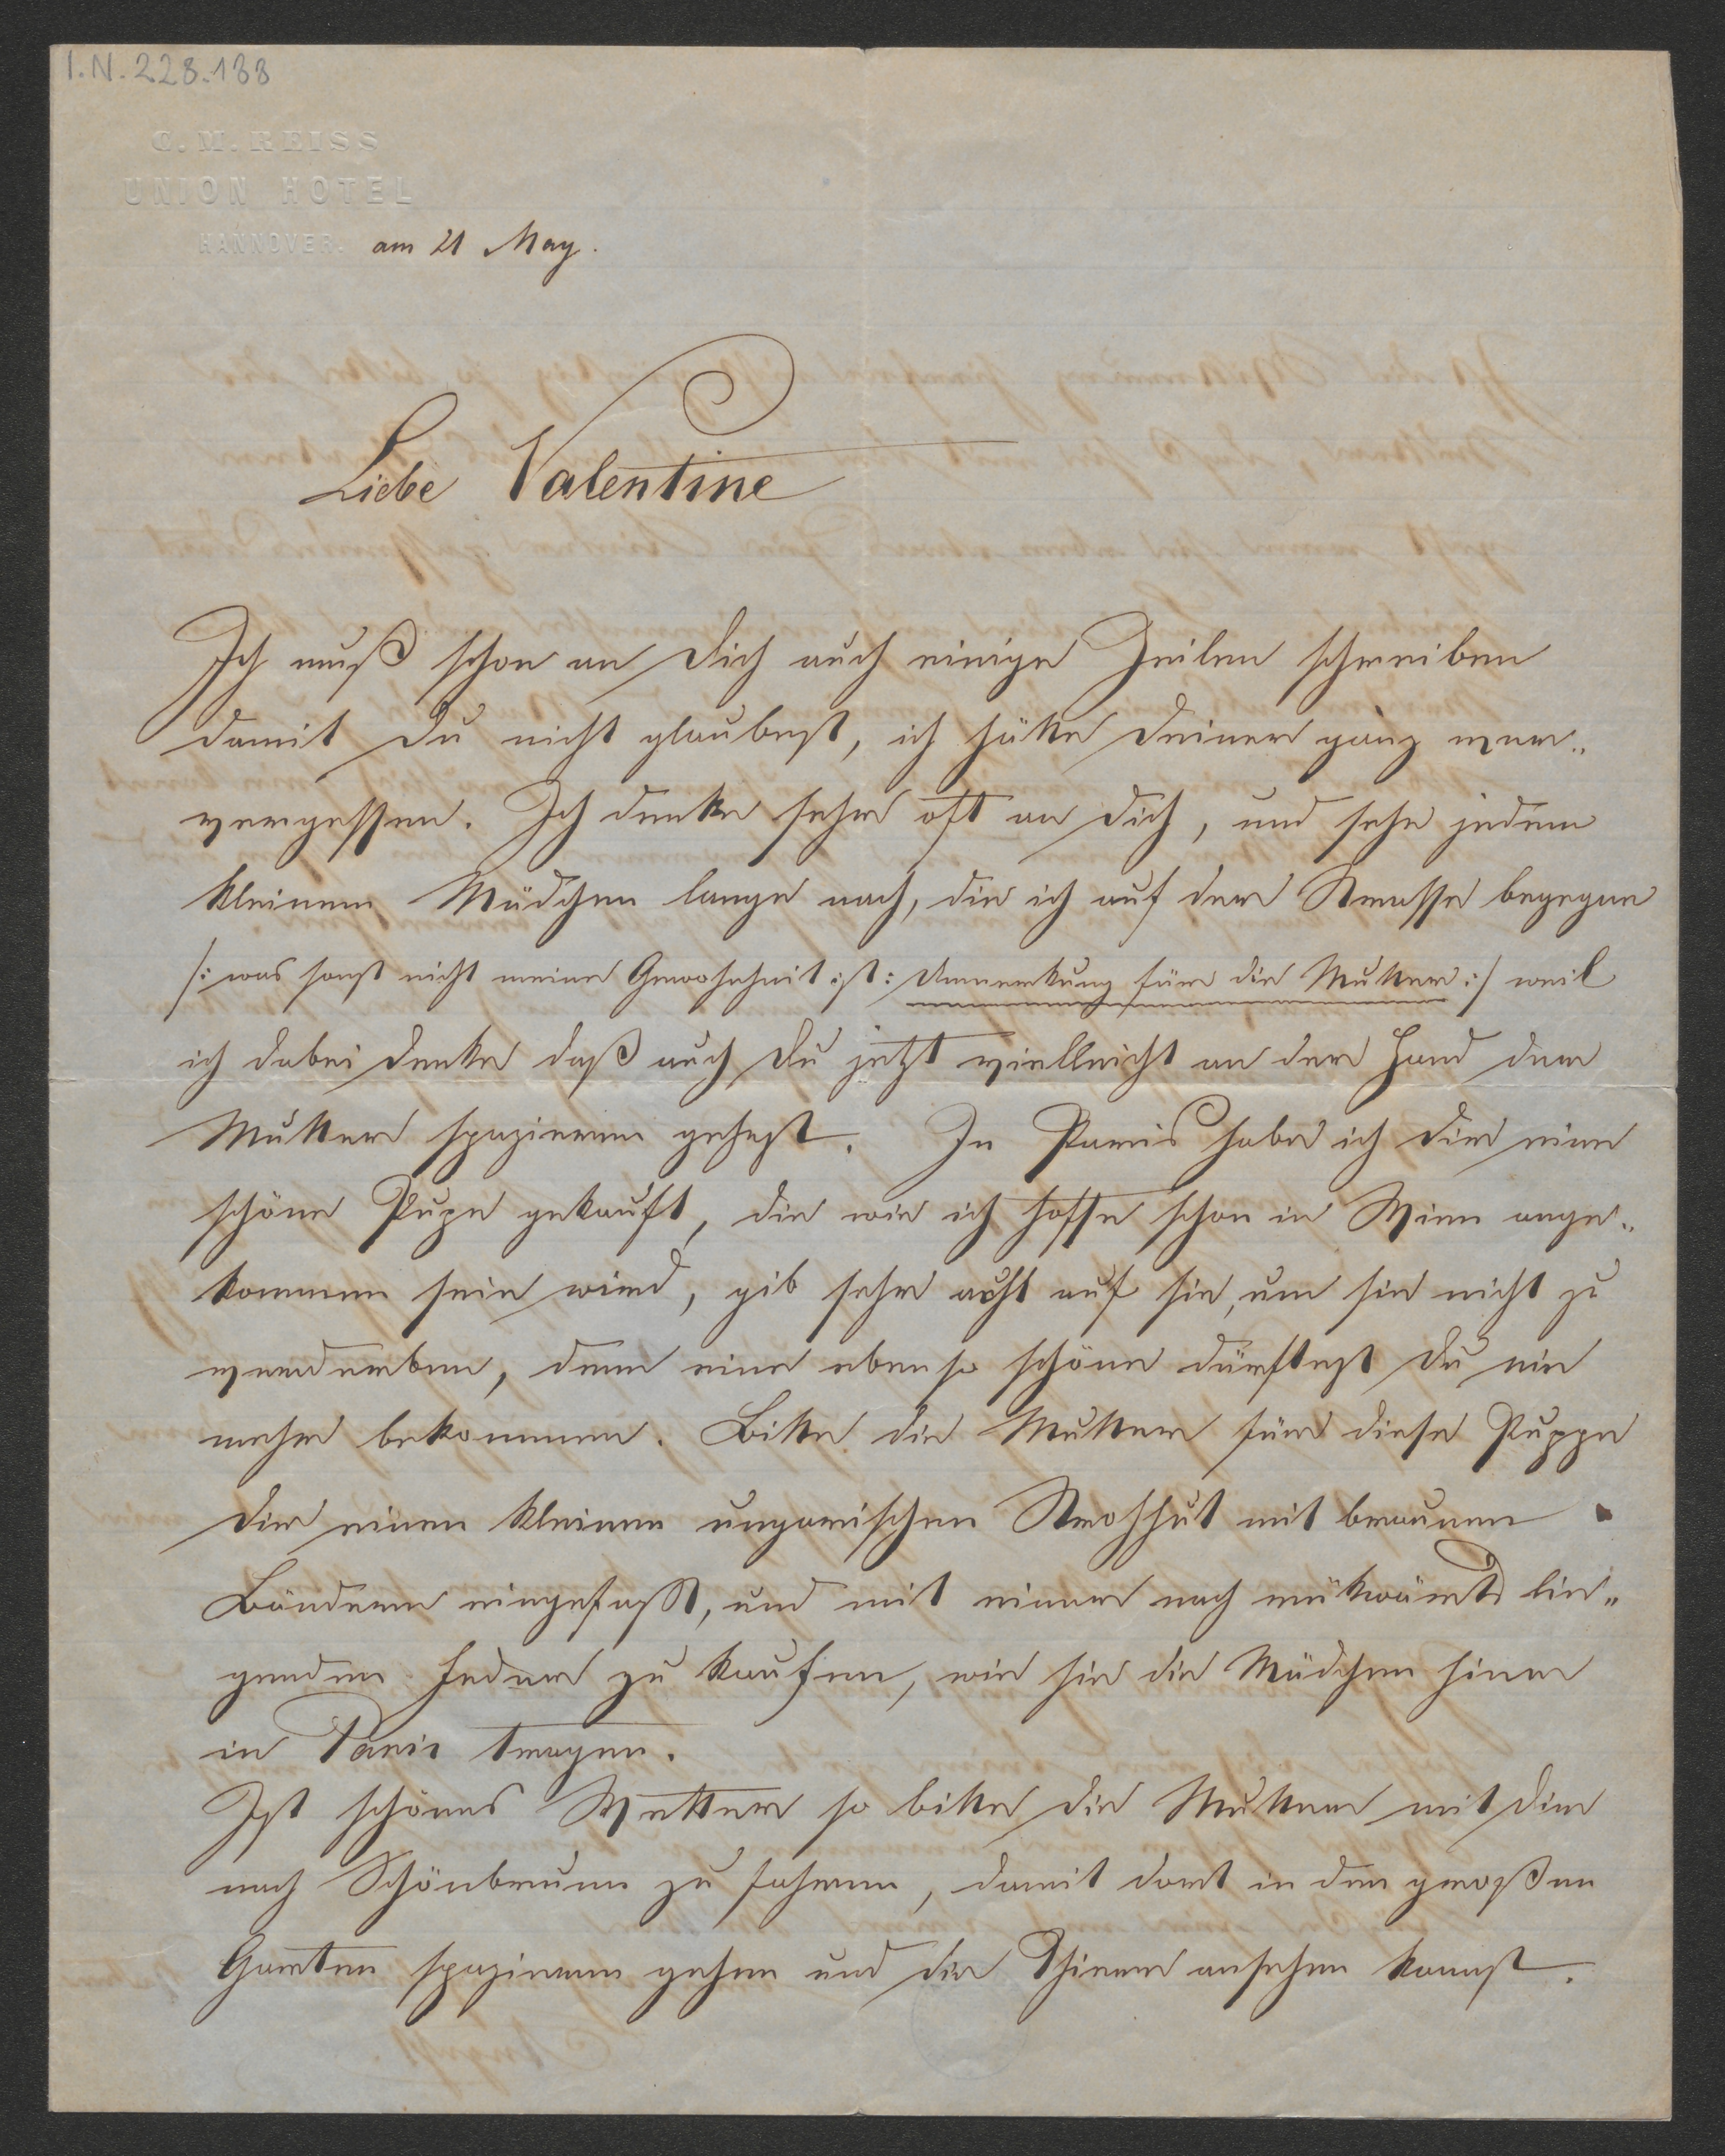 I.N. 228.188
C. M. REISS
UNION HOTEL
HANNOVER. am 21 May.
Liebe Valentine
Ich muß schon an Dich auch einige Zeilen schreiben
damit Du nicht glaubest, ich hätte Deiner ganz ver„
vergessen. Ich denke sehr oft an Dich, und sehe jedem
kleinem Mädchen lange nach, die ich auf der Strasse begegne
/: was sonst nicht meine Gewohnheit ist: Anmerkung für die Mutter :/ weil
ich dabei denke daß auch Du jetzt vielleicht an der Hand der
Mutter spazieren gehest. In Paris habe ich Dir eine
schöne Pupe gekauft, die wie ich hoffe schon in Wien ange„
kommen sein wird, gib sehr acht auf sie, um sie nicht zu
verderben, denn eine ebenso schöne dürftest Du nie
mehr bekommen. Bitte die Mutter für diese Puppe
Dir einen kleinen ungarischen Strohhut mit braunen
Bändern eingefaßt, und mit einer nach rükwärts lie„
genden Feder zu kaufen, wie sie die Mädchen hier
in Paris tragen.
Ist schönes Wetter so bitte die Mutter mit Dir
nach Schönbrunn zu fahren, damit dort in den großen
Garten spazieren gehen und die Thiere ansehen kannst.